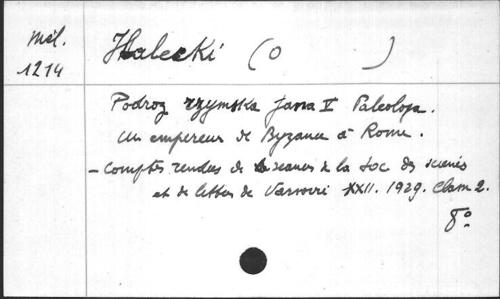 Mél.
1214
Halecki (O )
Podroz rzymska Jana V Paleologa.
Un empereur de Byzance à Rome.
- Comptes rendus de séances de la Soc des sciences
et de lettres de Varsovie XXII. 1929. Class 2.
8°